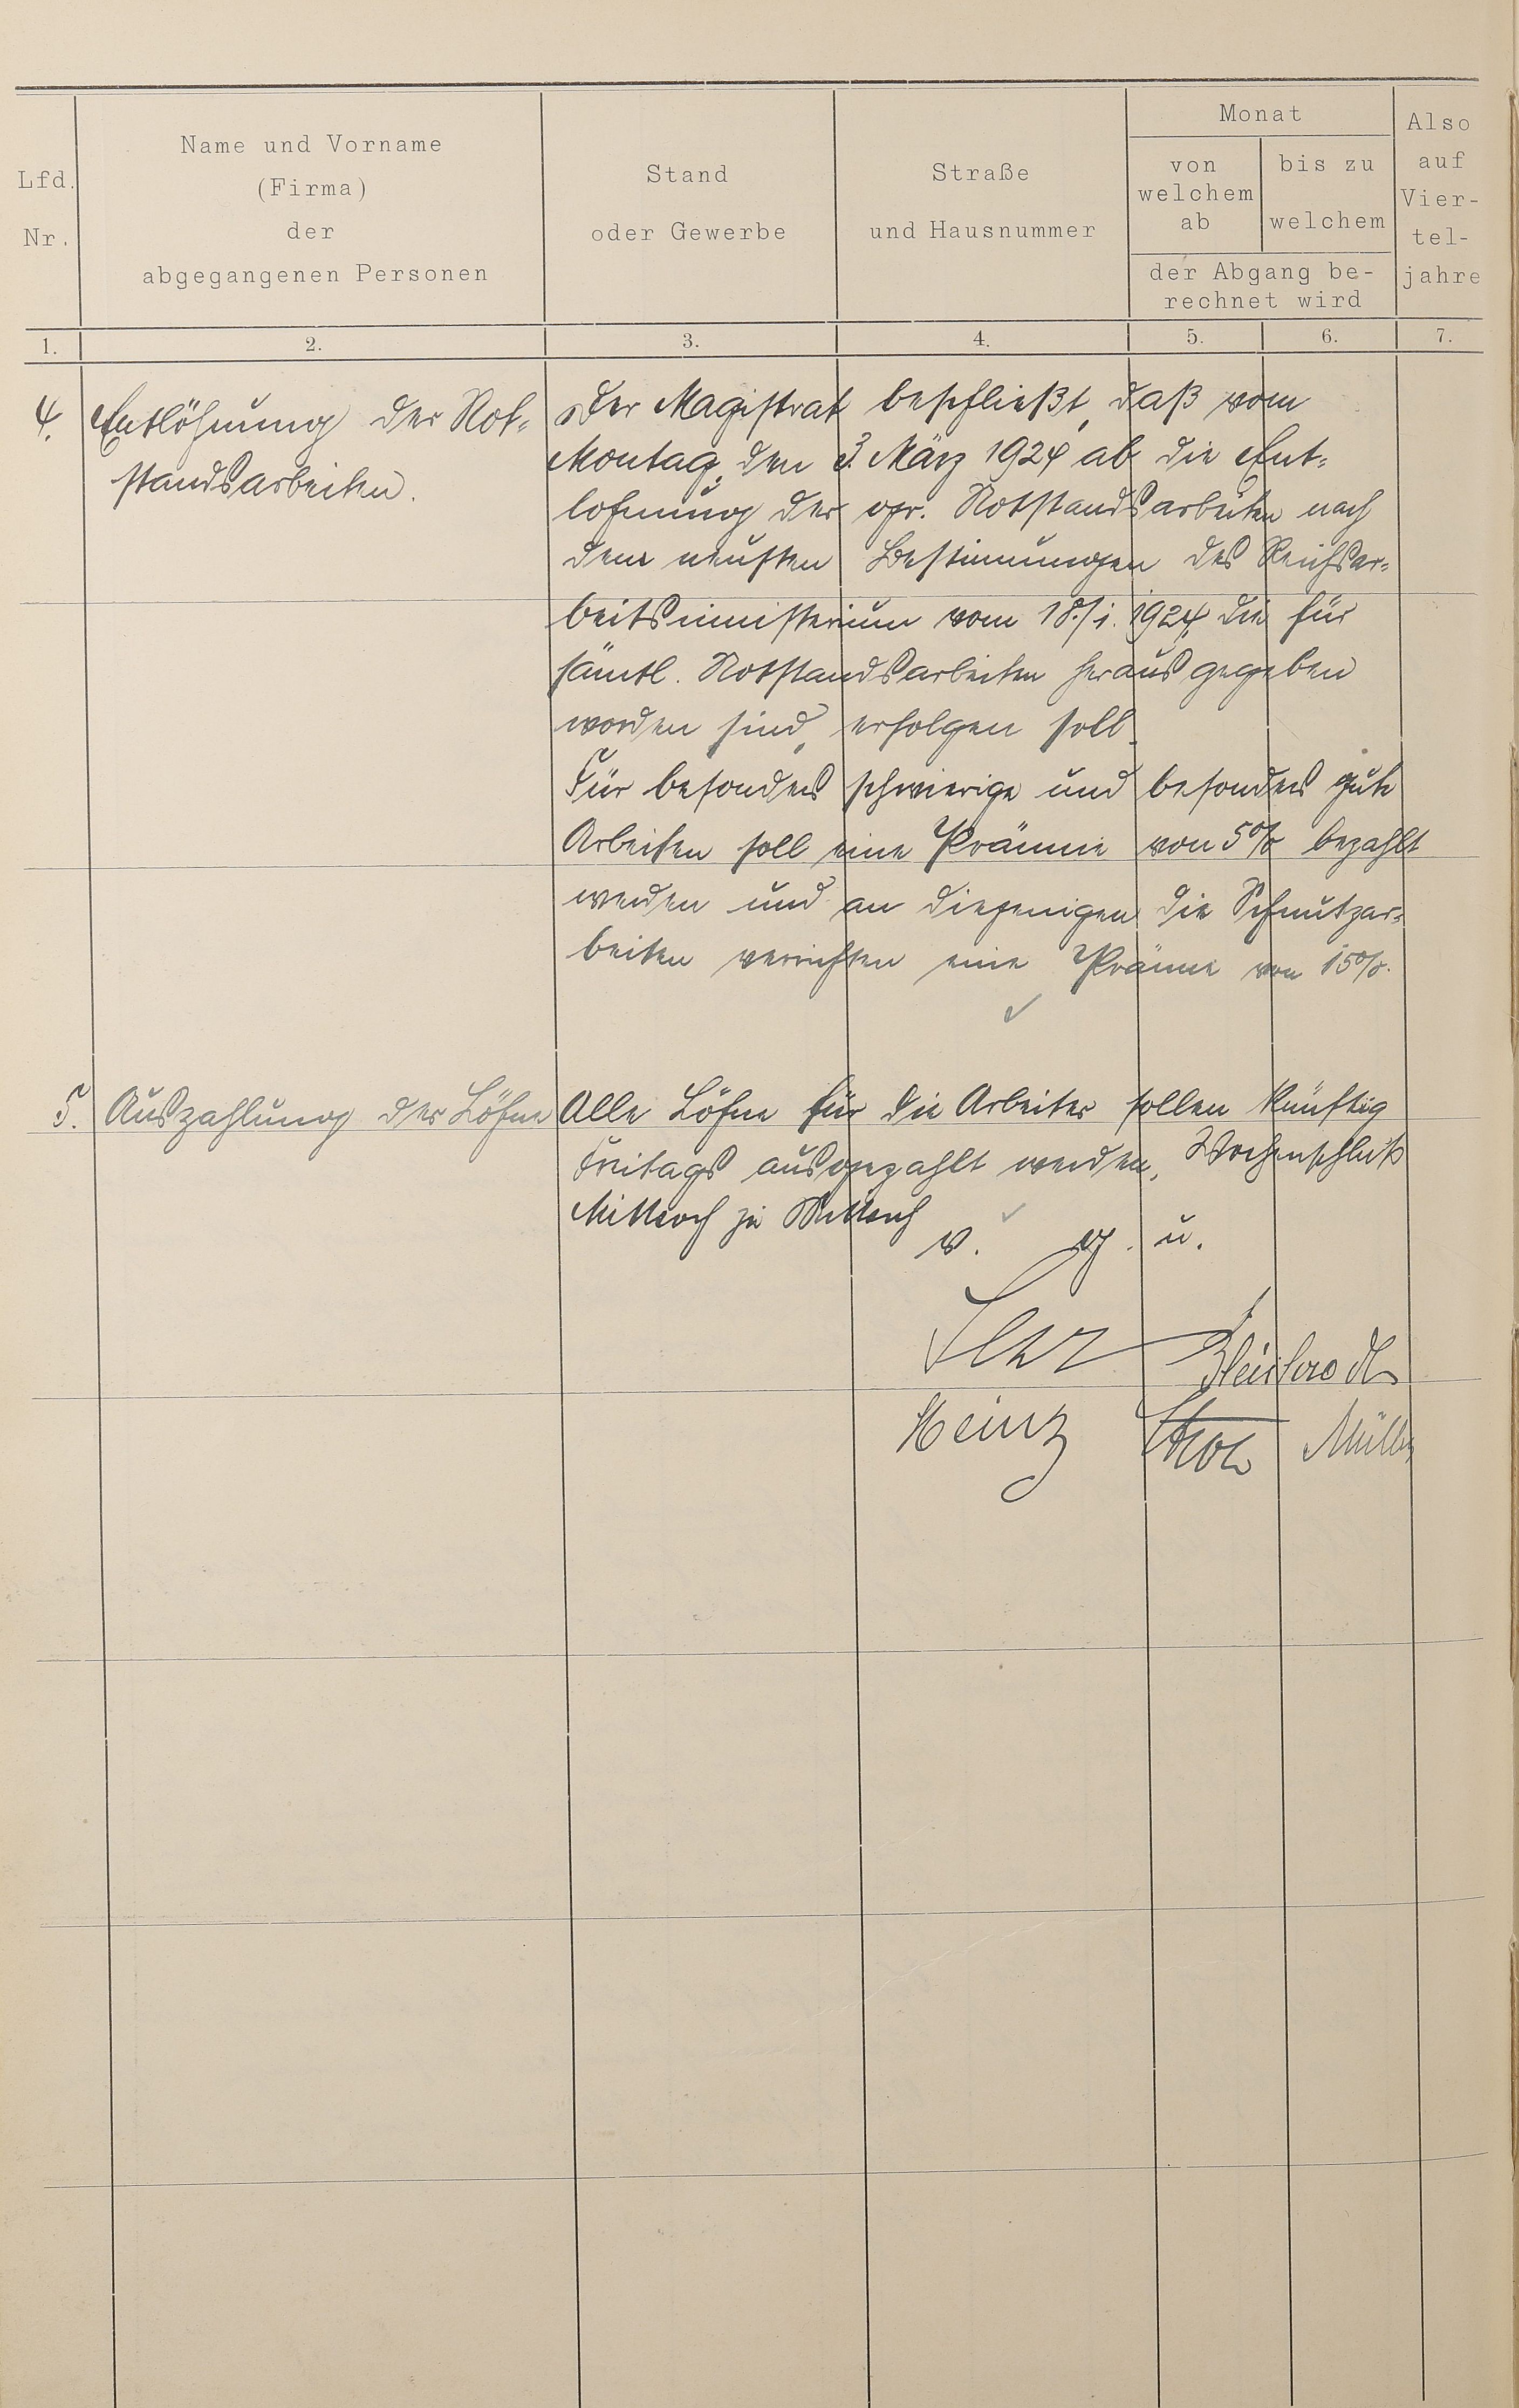 Lfd. Nr.
Name und Vorname
(Firma)
der
abgegangenen Personen
Stand
oder Gewerbe
Straße
und Hausnummer
Monat
von
welchem
ab
bis zu
welchem
der Abgang be-
rechnet wird
Also
auf
Vier-
tel-
jahre
1. 2. 3. 4. 5. 6. 7.
4. Entlöhnung der Not-
standsarbeiten.
Der Magistrat beschließt, daß vom
Montag, den 3. März 1924 ab die Ent-
lohnung der gr. Notstandsarbeiten nach
dem neusten Bestimmungen des Reichsar-
beitsministerium vom 18./1. 1924, die für
sämtl. Notstandsarbeiten herausgegeben
worden sind, erfolgen soll.
Für besonders schwierige und besonders gute
Arbeiten soll eine Prämie von 5% bezahlt
werden und an diejenigen die Schmutzar-
beiten verrichten eine Prämie von 15%.
5. Auszahlung der Löhne
Alle Löhne für die Arbeiter sollen künftig
Freitags ausgezahlt werden, Wochenschluß
Mittwoch zu Mittwoch
v. g. u.
Heinz Müller